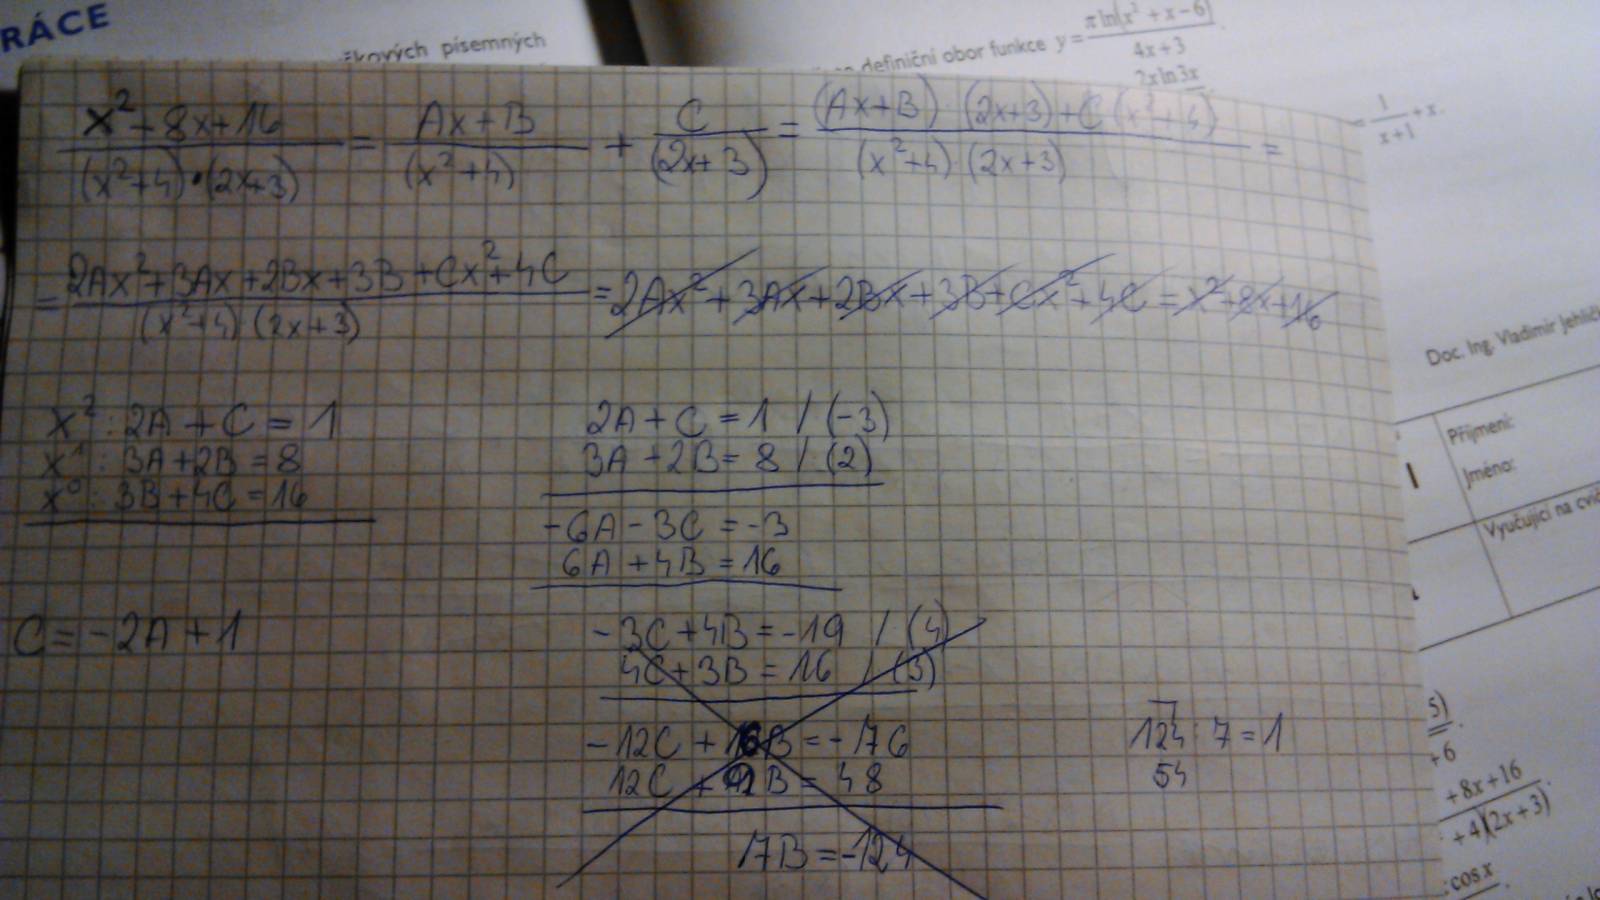 RÁCE
čkových písemných
definiční obor funkce y = πln(x² + x - 6) / 4x + 3
2x ln 3x
= 1 / x + 1 + x.
x² + 8x + 16 / (x²+4)·(2x+3) = Ax + B / (x²+4) + C / (2x+3) = (Ax+B)·(2x+3)+C(x²+4) / (x²+4)·(2x+3) =
= 2Ax²+3Ax+2Bx+3B+Cx²+4C / (x²+4)·(2x+3) = 2Ax²+3Ax+2Bx+3B+Cx²+4C = x²+8x+16
Doc. Ing. Vladimír Jehlič
x²: 2A + C = 1
x¹: 3A+2B = 8
x⁰: 3B+4C = 16
2A + C = 1 / (-3)
3A + 2B = 8 / (2)
-6A - 3C = -3
6A + 4B = 16
C = -2A + 1
-3C + 4B = -19 / (4)
4C + 3B = 16 / (3)
-12C + 16B = -76
12C + 9B = 48
17B = -124
124 : 7 = 1
54
Příjmení:
Jméno:
Vyučující na cvič
5)
+6
+ 8x + 16
+ 4)(2x + 3)
cos x